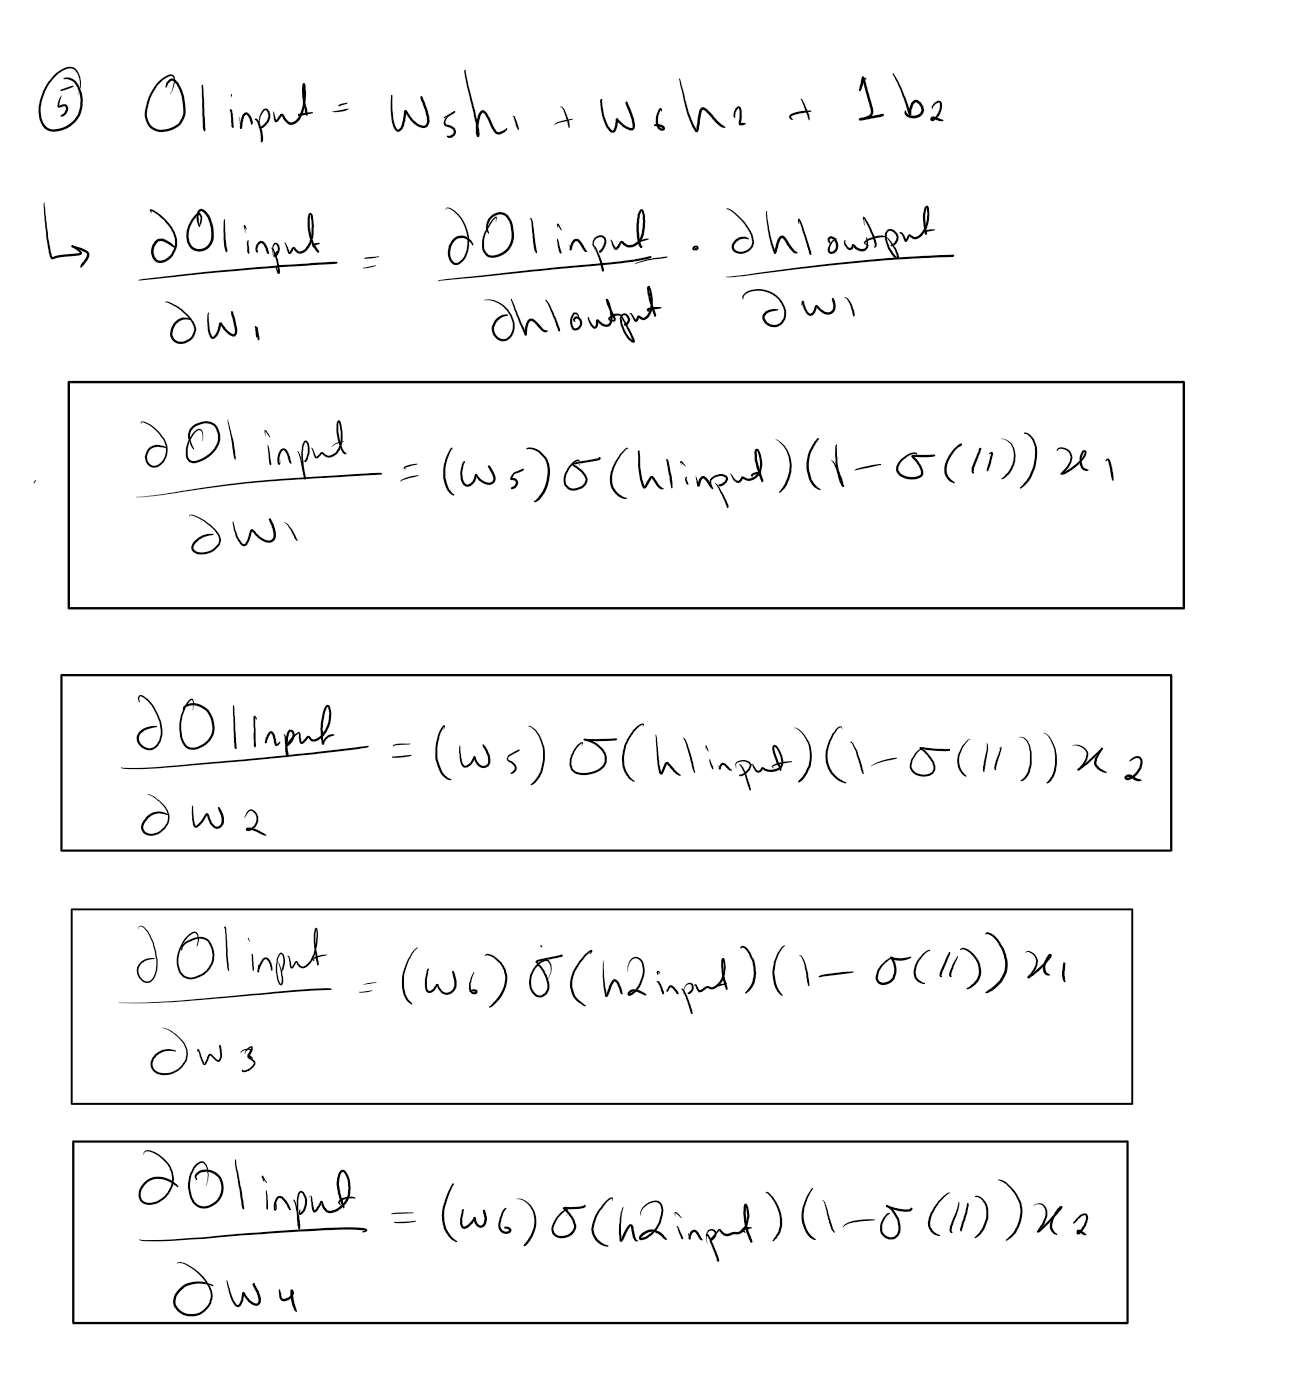 ⑤ O1 input = w₅h₁ + w₆h₂ + 1b₂
↳ ∂O1 input / ∂w₁ = ∂O1 input / ∂h1 output · ∂h1 output / ∂w₁
∂O1 input / ∂w₁ = (w₅) σ(h1 input)(1 − σ(〃)) x₁
∂O1 Input / ∂w₂ = (w₅) σ(h1 input)(1 − σ(〃)) x₂
∂O1 input / ∂w₃ = (w₆) σ(h2 input)(1 − σ(〃)) x₁
∂O1 input / ∂w₄ = (w₆) σ(h2 input)(1 − σ(〃)) x₂